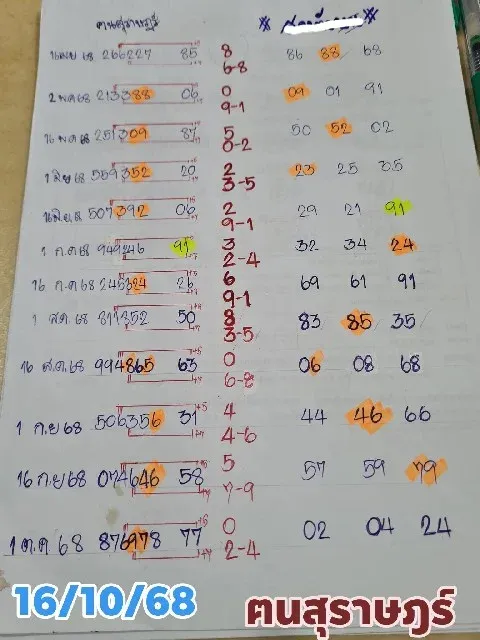 ฅนสุราษฎร์
16 เมย 68 266227 85 8 86 88 68
6-8
2 พค 68 213388 06 0 09 01 91
9-1
16 พค 68 251309 87 5 50 52 02
0-2
1 มิย 68 559352 20 2 23 25 35
3-5
507392 06 2 29 21 91
9-1
1 ก.ค 68 949246 91 3 32 34 24
2-4
16 ก.ค 68 245324 26 6 69 61 91
9-1
1 ส.ค 68 811852 50 8 83 85 35
3-5
16 ส.ค. 68 994865 63 0 06 08 68
6-8
1 ก.ย 68 506356 31 4 44 46 66
4-6
16 ก.ย 68 074646 58 5 57 59 79
7-9
1 ต.ค 68 876978 77 0 02 04 24
2-4
16/10/68 ฅนสุราษฎร์